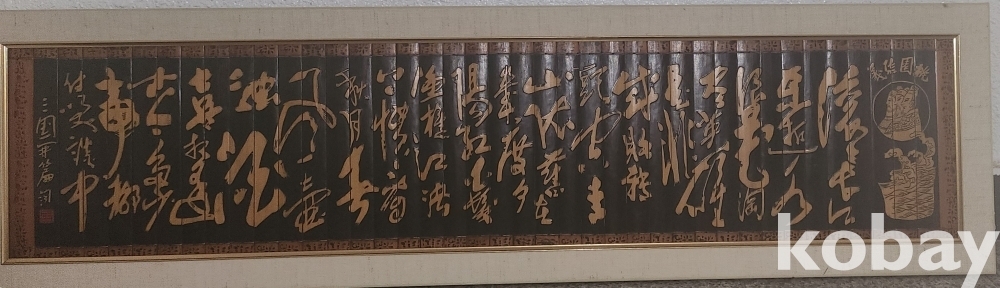 桃园结义
滚滚长江
东逝水
浪花淘
尽英雄
是非
成败转
头空青
山依旧在
几度夕
阳红白发
渔樵江渚
上惯看
秋月春
风一壶
浊酒
喜相逢
古今多少
事都
付笑谈中
三国开篇词
kobay